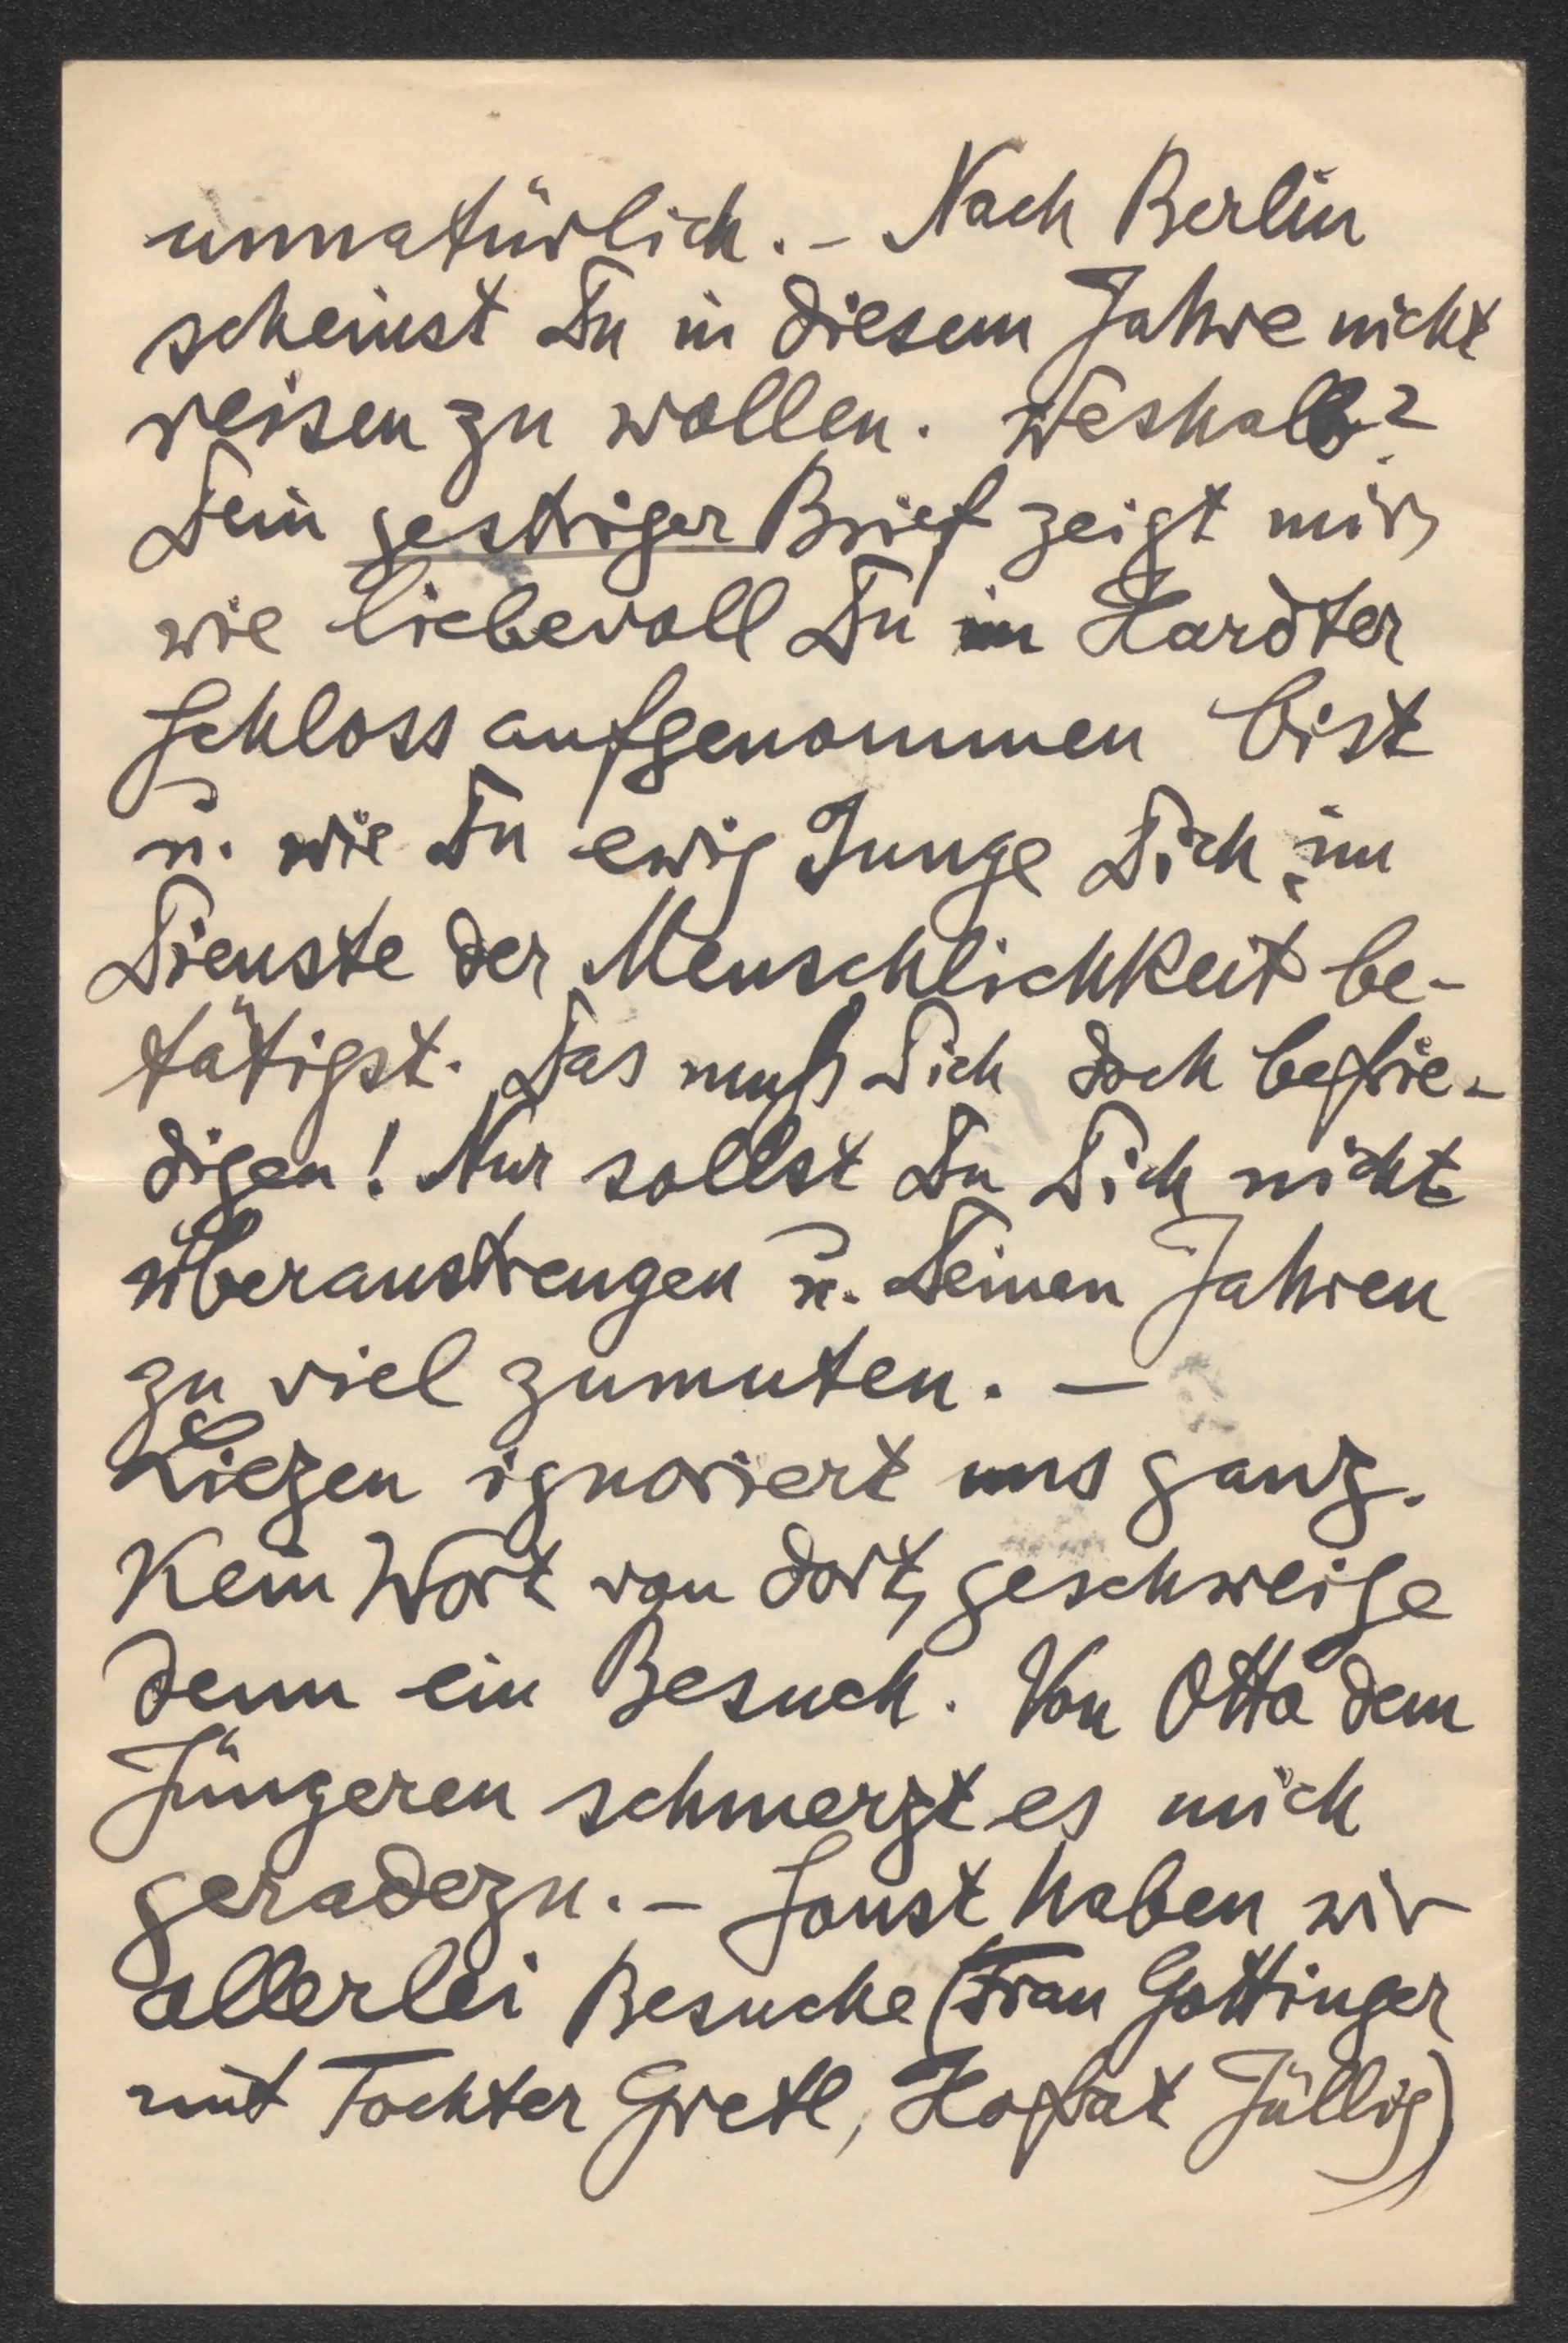 unnatürlich. – Nach Berlin
scheinst Du in diesem Jahre nicht
reisen zu wollen. Weshalb?
Dein gestriger Brief zeigt mir,
wie liebevoll Du im Hardter
Schloss aufgenommen bist
u. wie Du ewig Junge Dich im
Dienste der Menschlichkeit be-
tätigst. Das muß Dich doch befrie-
digen! Nur sollst Du Dich nicht
überanstrengen u. Deinen Jahren
zu viel zumuten. –
Liezen ignoriert uns ganz.
Kein Wort von dort, geschweige
denn ein Besuch. Von Otto dem
Jüngeren schmerzt es mich
geradezu. – Sonst haben wir
allerlei Besuche (Frau Gottinger
mit Tochter Gretl, Hofrat Jüllig)